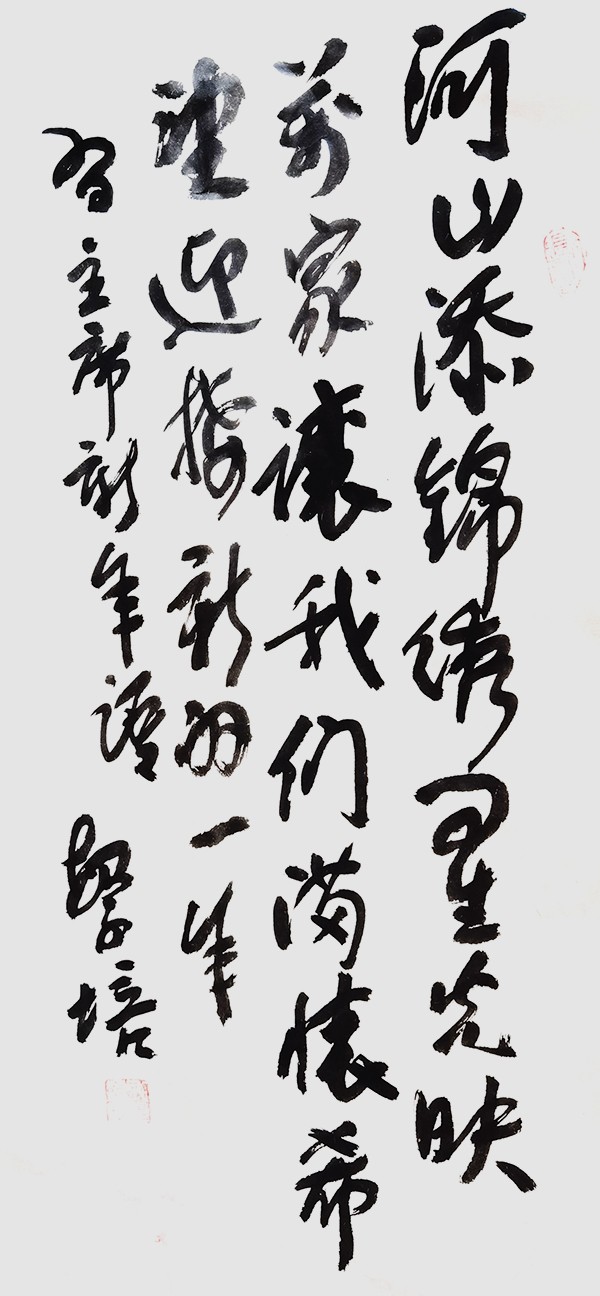 河山添锦绣星光映
萬家讓我们满懷希
望迎接新的一年
習主席新年語
培